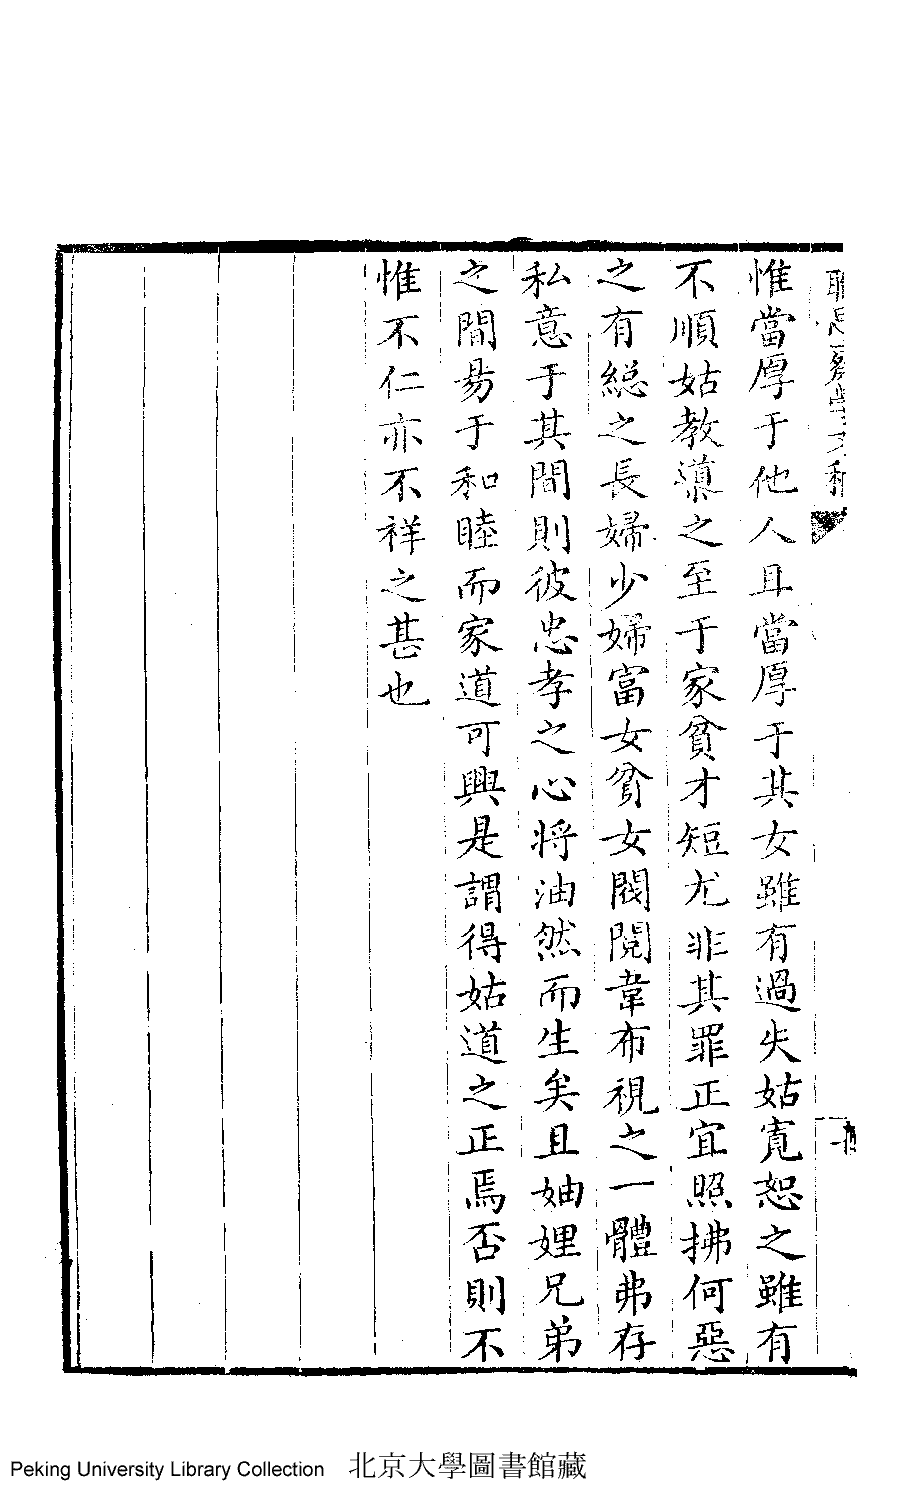 惟當厚于他人且當厚于其女雖有過失姑寬恕之雖有
不順姑教導之至于家貧才短尤非其罪正宜照拂何惡
之有総之長婦少婦富女貧女閥閱韋布視之一體弗存
私意于其間則彼忠孝之心將油然而生矣且妯娌兄弟
之間易于和睦而家道可興是謂得姑道之正焉否則不
惟不仁亦不祥之甚也
Peking University Library Collection 北京大學圖書館藏